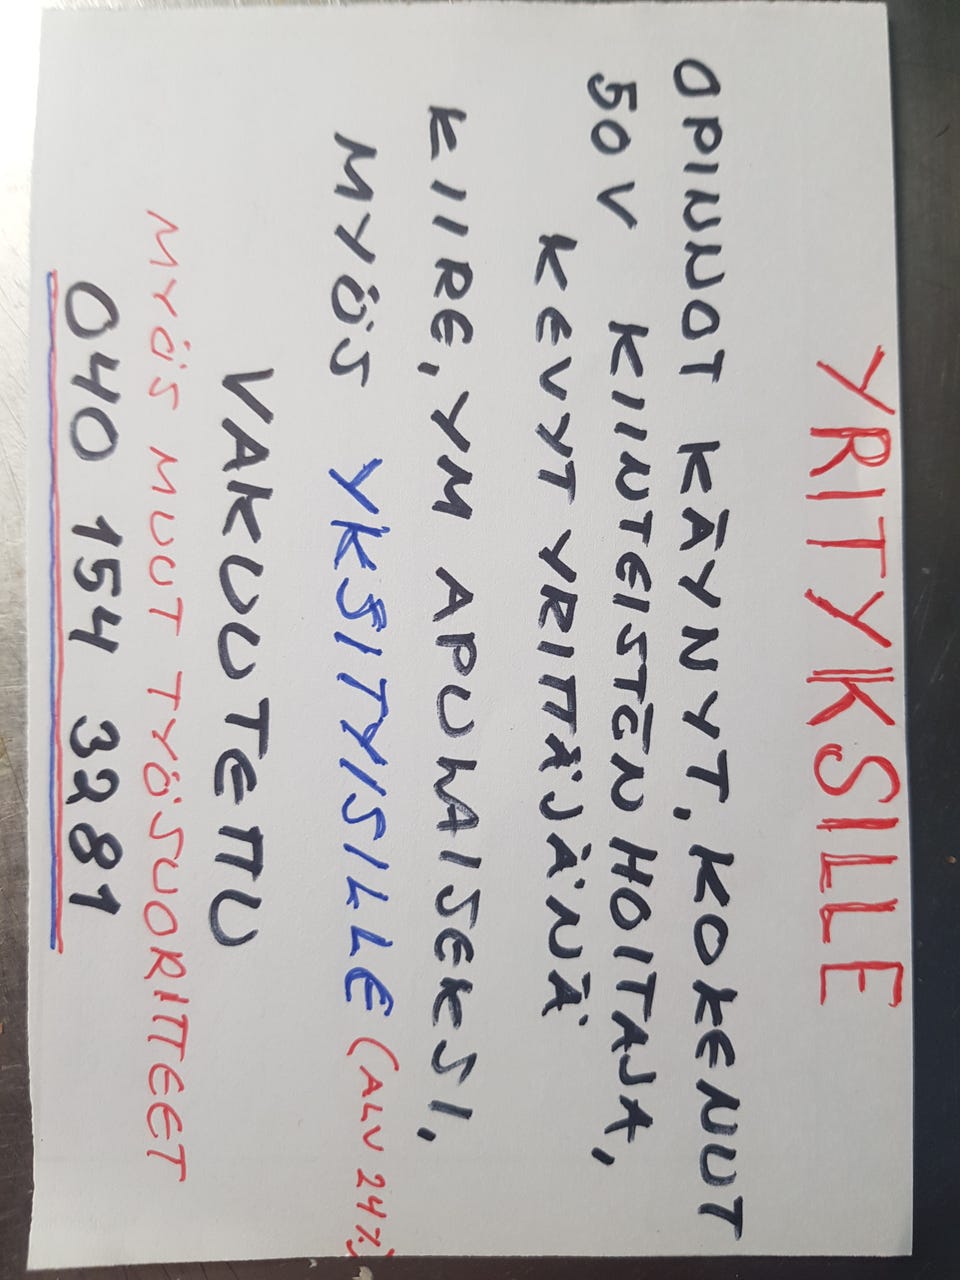 YRITYKSILLE
OPINNOT KÄYNYT, KOKENUT
50V KIINTEISTÖN HOITAJA,
KEVYT YRITTÄJÄNÄ
KIIRE, YM APULAISEKSI,
MYÖS YKSITYISILLE (ALV 24%)
VAKUUTETTU
MYÖS MUUT TYÖSUORITTEET
040 154 3281